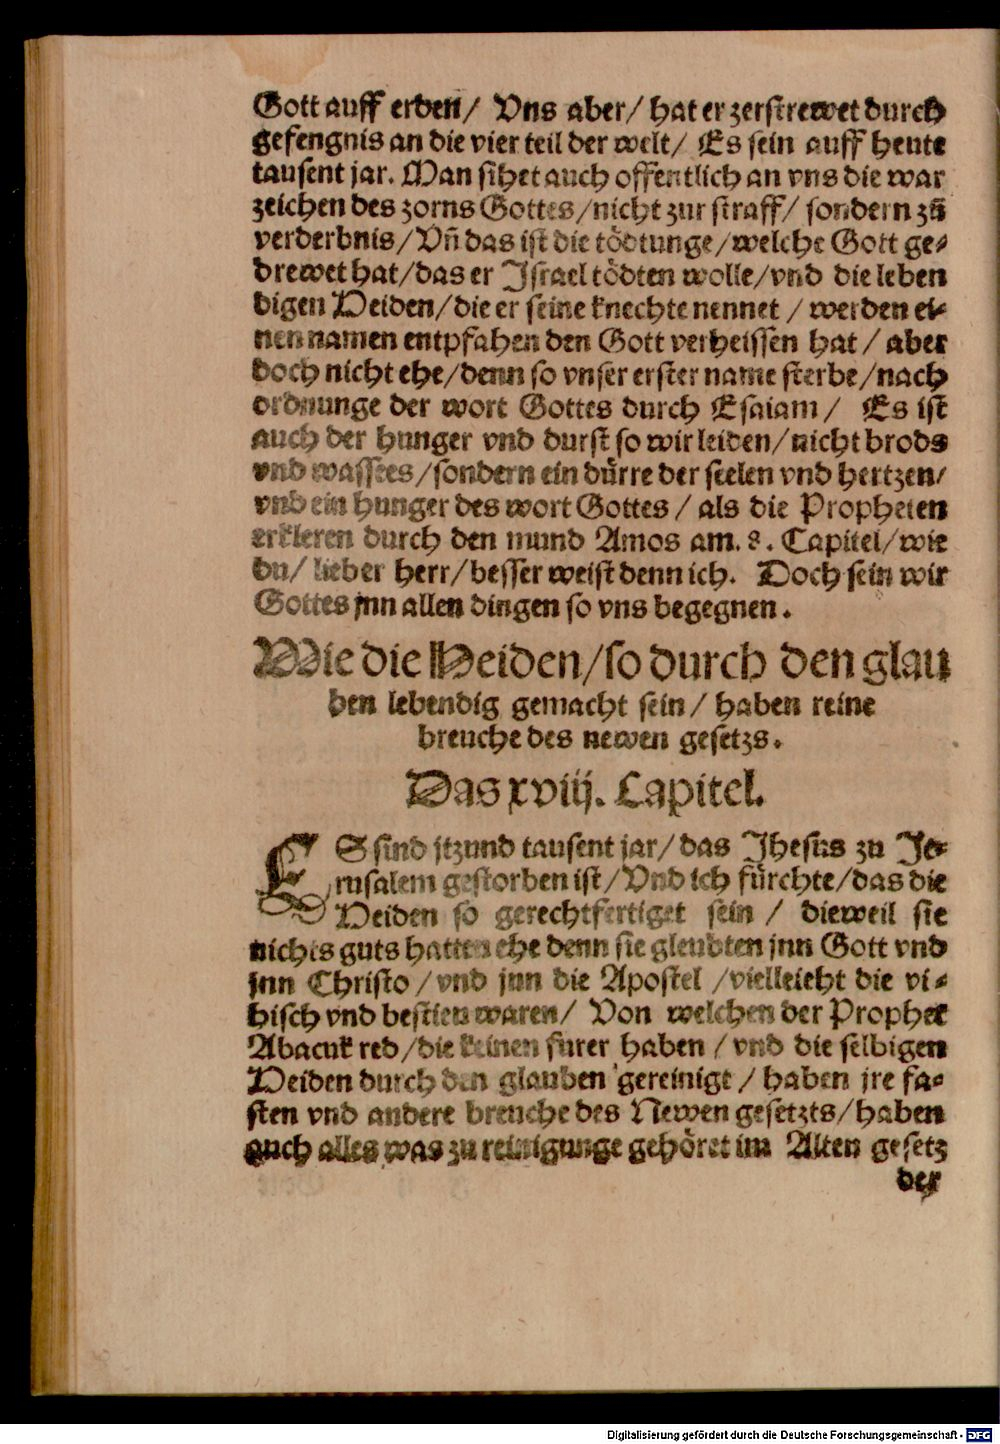 Gott auff erden/ Vns aber/ hat er zerstrewet durch
gefengnis an die vier teil der welt/ Es sein auff heute
tausent jar. Man sihet auch offentlich an vns die war
zeichen des zorns Gottes/nicht zur straff/ sondern zů
verderbnis/Vñ das ist die tödtunge/welche Gott ge-
drewet hat/das er Israel tödten wolle/vnd die leben
digen Heiden/die er seine knechte nennet / werden ei-
nen namen entpfahen den Gott verheissen hat/ aber
doch nicht ehe/denn so vnser erster name sterbe/nach
ordnunge der wort Gottes durch Esaiam/ Es ist
auch der hunger vnd durst so wir leiden/nicht brods
vnd wassers/sondern ein dürre der seelen vnd hertzen/
vnd ein hunger des wort Gottes/ als die Propheten
erkleren durch den mund Amos am. 8. Capitel/wie
du/ lieber herr/besser weist denn ich. Doch sein wir
Gottes jnn allen dingen so vns begegnen.
Wie die Heiden/so durch den glau
ben lebendig gemacht sein/ haben reine
breuche des newen gesetzs.
Das xviij. Capitel.
ES sind jtzund tausent jar/das Jhesus zu Je-
rusalem gestorben ist/Vnd ich fürchte/das die
Heiden so gerechtfertiget sein / dieweil sie
nichts guts hatten ehe denn sie gleubten jnn Gott vnd
jnn Christo/vnd jnn die Apostel/vielleicht die vi-
hisch vnd bestien waren/ Von welchen der Prophet
Abacuk red/die keinen furer haben / vnd die selbigen
Heiden durch den glauben gereinigt / haben jre fa-
sten vnd andere breuche des Newen gesetzts/haben
auch alles was zu reinigunge gehöret im Alten gesetz
der
Digitalisierung gefördert durch die Deutsche Forschungsgemeinschaft - DFG